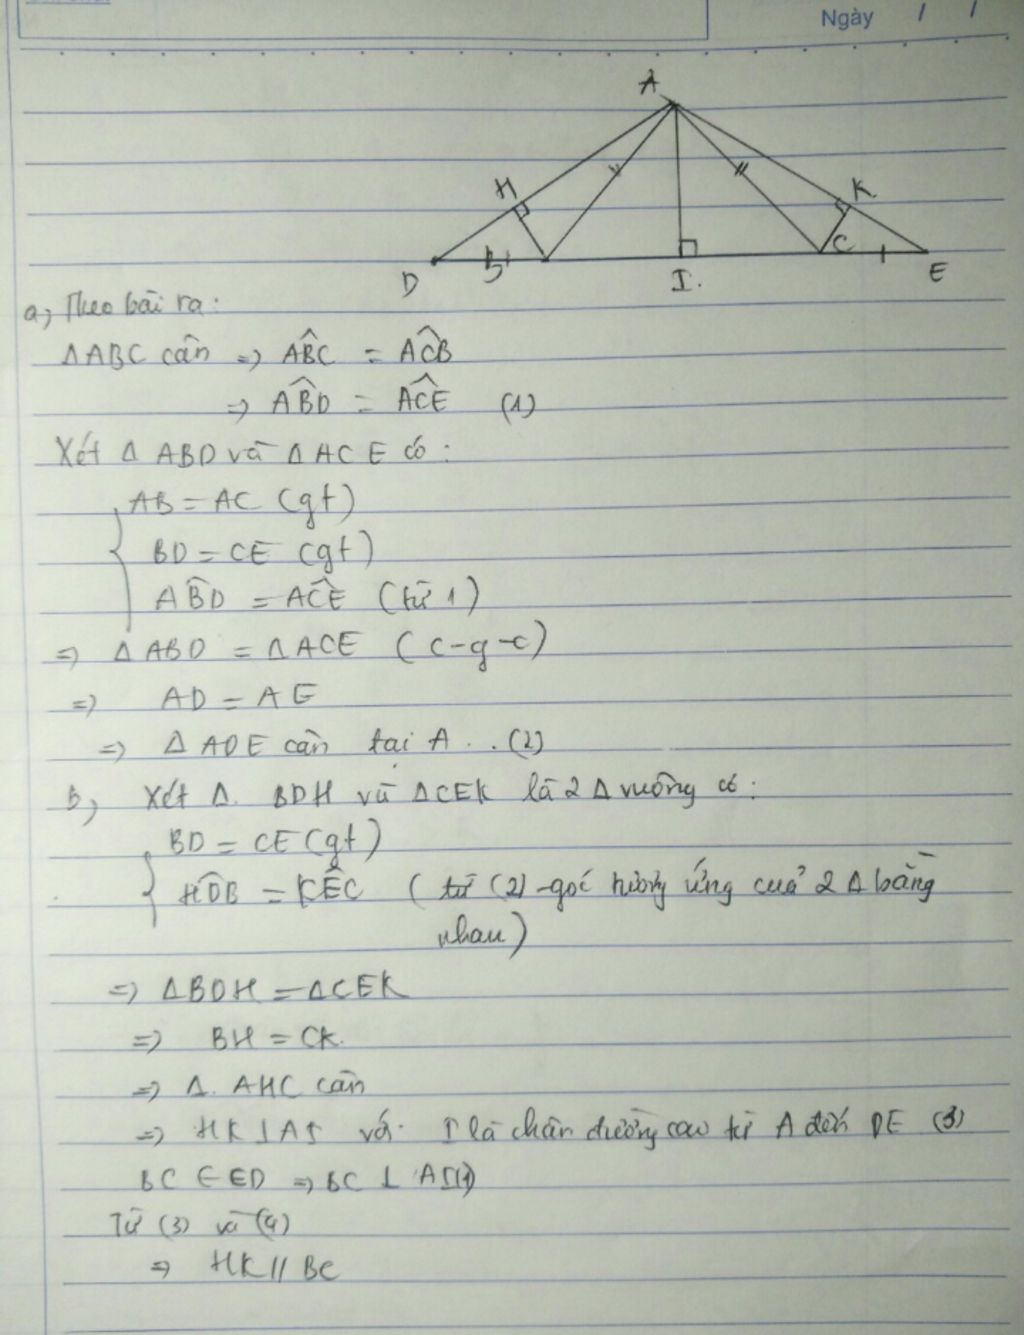 Ngày / /
A
H
K
B
C
D
I.
E
a, Theo bài ra:
ΔABC cân => ABC^ = ACB^
=> ABD^ = ACE^ (1)
Xét Δ ABD và Δ ACE có:
AB = AC (gt)
BD = CE (gt)
ABD^ = ACE^ (từ 1)
=> Δ ABD = Δ ACE (c-g-c)
=> AD = AE
=> Δ ADE cân tại A . . (2)
b, Xét Δ. BDH và ΔCEK là 2 Δ vuông có:
BD = CE (gt)
HDB^ = KEC^ (từ (2) - góc tương ứng của 2 Δ bằng
nhau)
=> ΔBDH = ΔCEK
=> BH = CK.
=> Δ. AHC cân
=> HK ⊥ AI với I là chân đường cao từ A đến DE (3)
BC ∈ ED => BC ⊥ AI(4)
Từ (3) và (4)
=> HK // BC